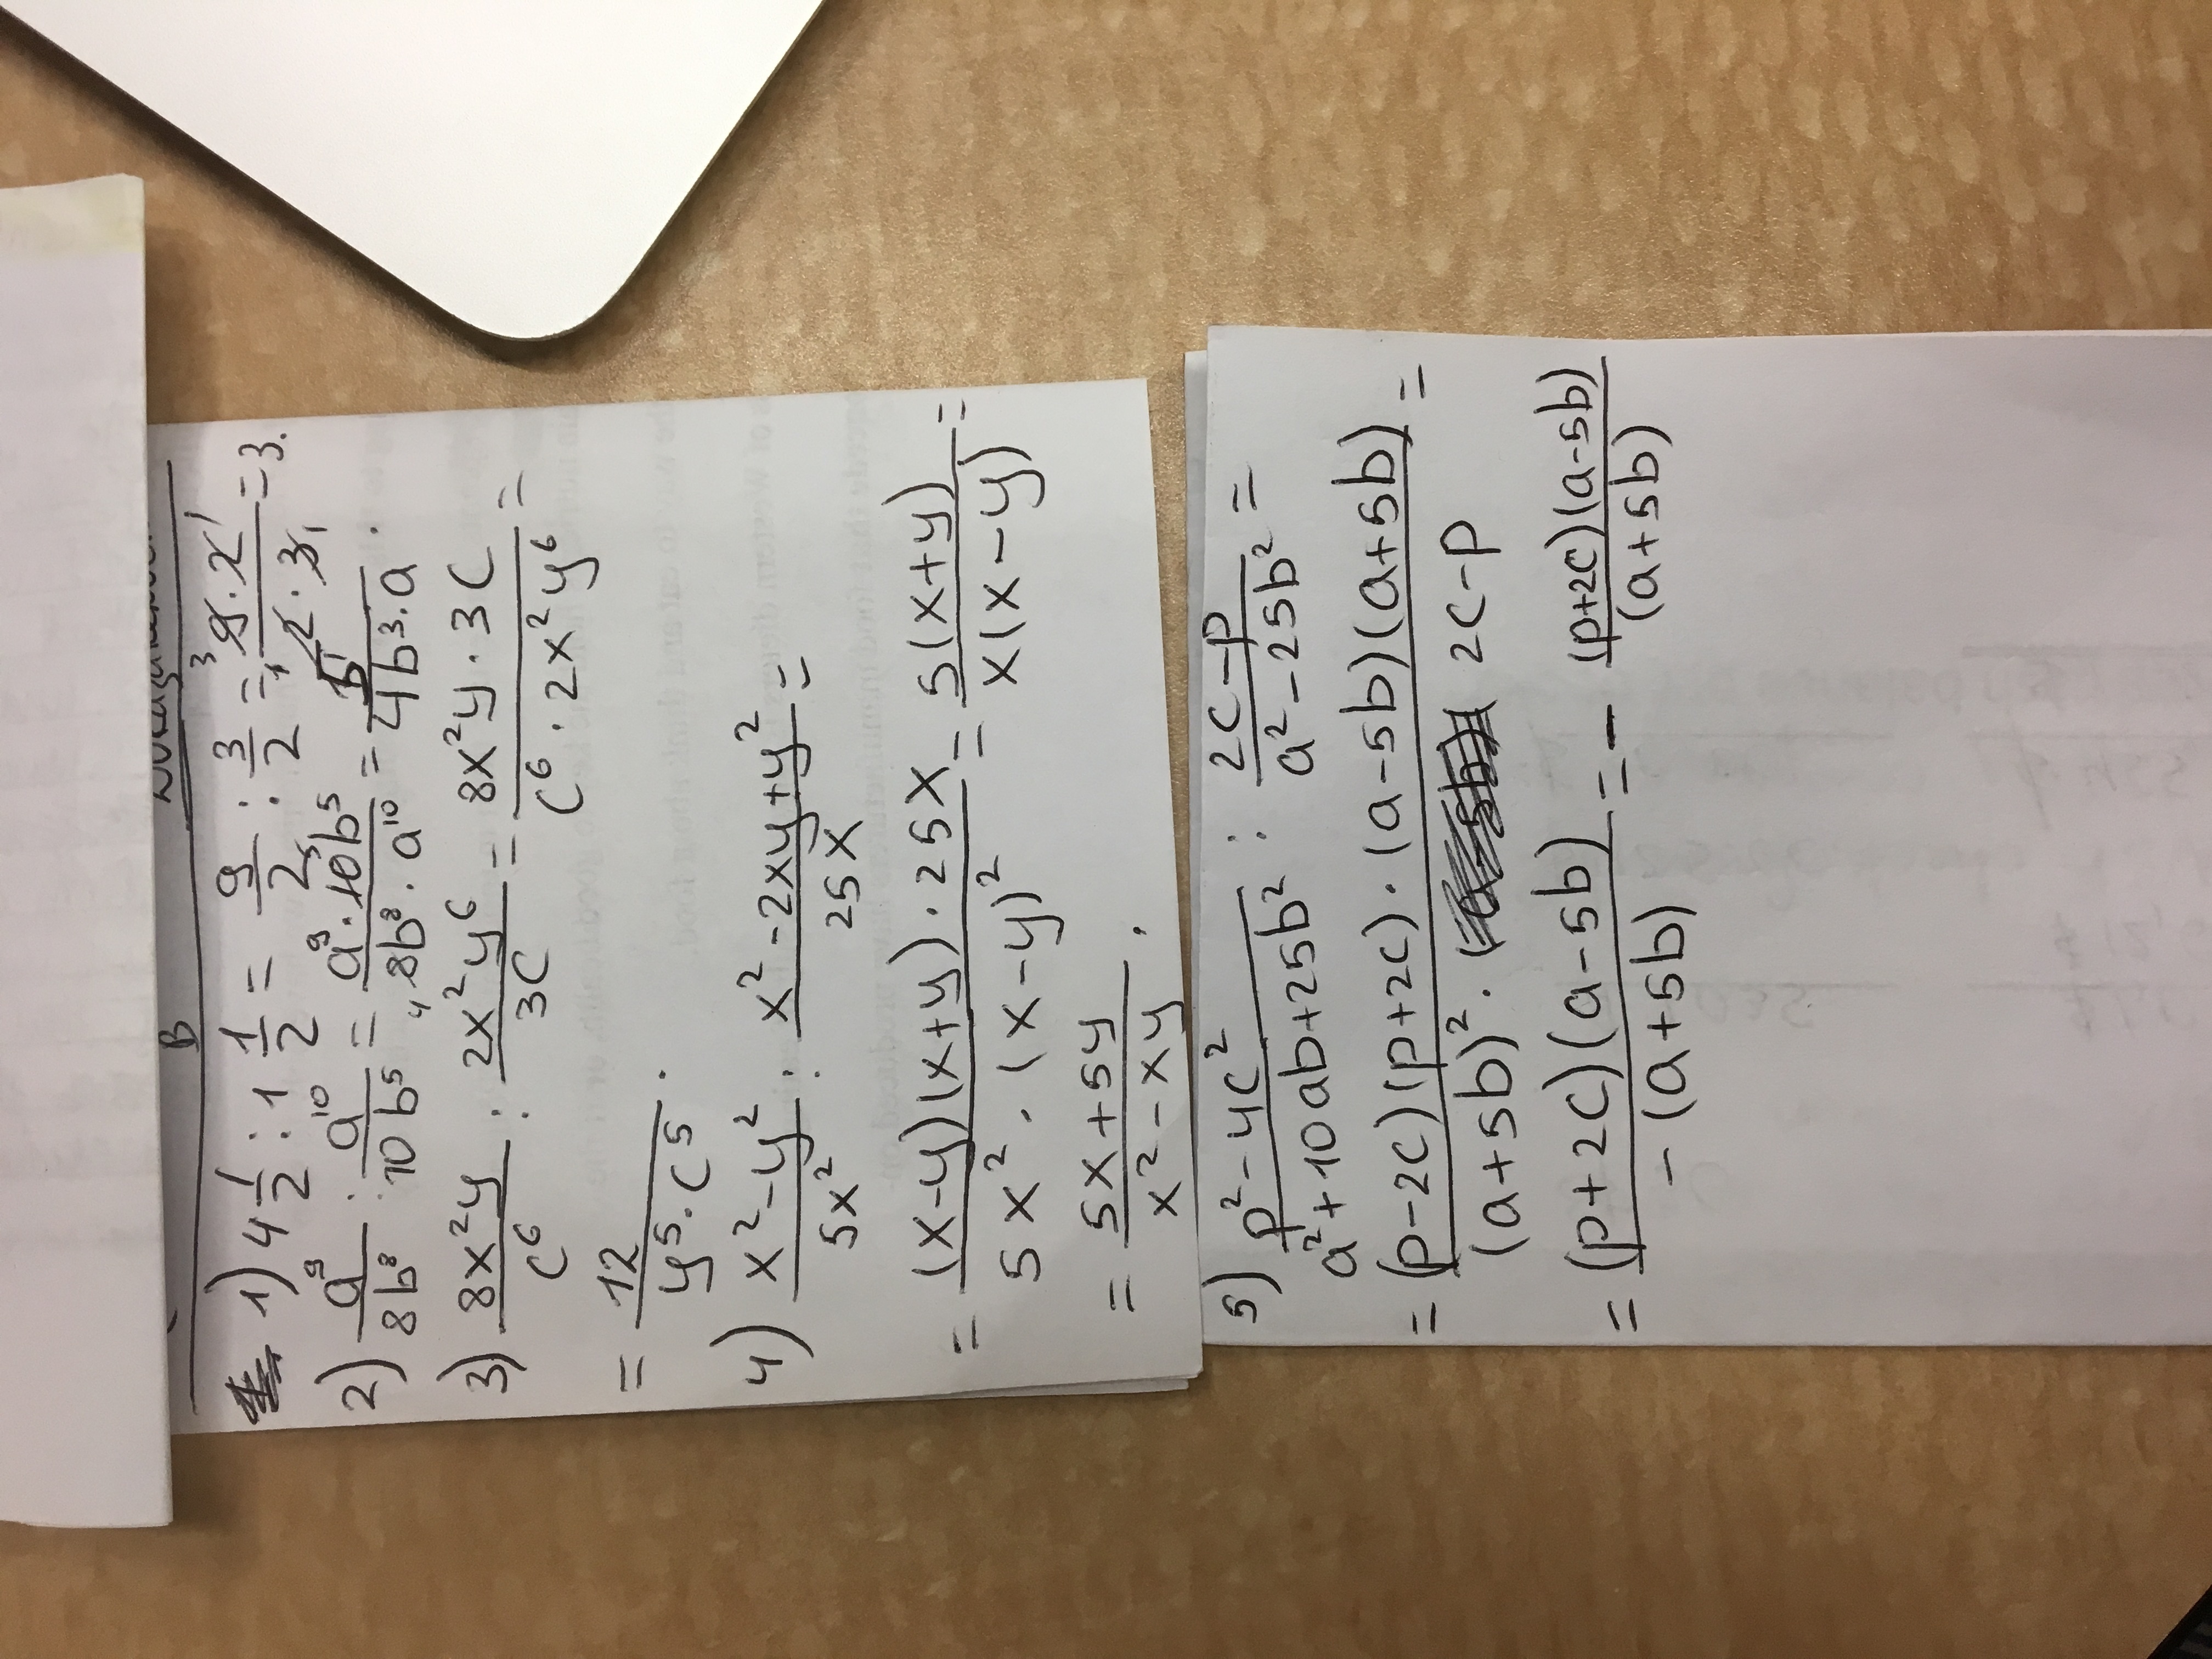 B
1) 4 1/2 : 1 1/2 = 9/2 : 3/2 = (9·2)/(2·3) = 3.
2) a⁹/8b⁸ : a¹⁰/10b⁵ = (a⁹·10b⁵)/(8b⁸·a¹⁰) = 5/(4b³·a).
3) 8x²y/c⁶ : 2x²y⁶/3c = (8x²y·3c)/(c⁶·2x²y⁶) =
= 12/(y⁵·c⁵).
4) (x²-y²)/5x² : (x²-2xy+y²)/25x =
= ((x-y)(x+y)·25x)/(5x²·(x-y)²) = 5(x+y)/x(x-y) =
= (5x+5y)/(x²-xy).
5) (p²-4c²)/(a²+10ab+25b²) : (2c-p)/(a²-25b²) =
= ((p-2c)(p+2c)·(a-5b)(a+5b))/((a+5b)²·2c-p) =
= ((p+2c)(a-5b))/(-(a+5b)) = - ((p+2c)(a-5b))/(a+5b)